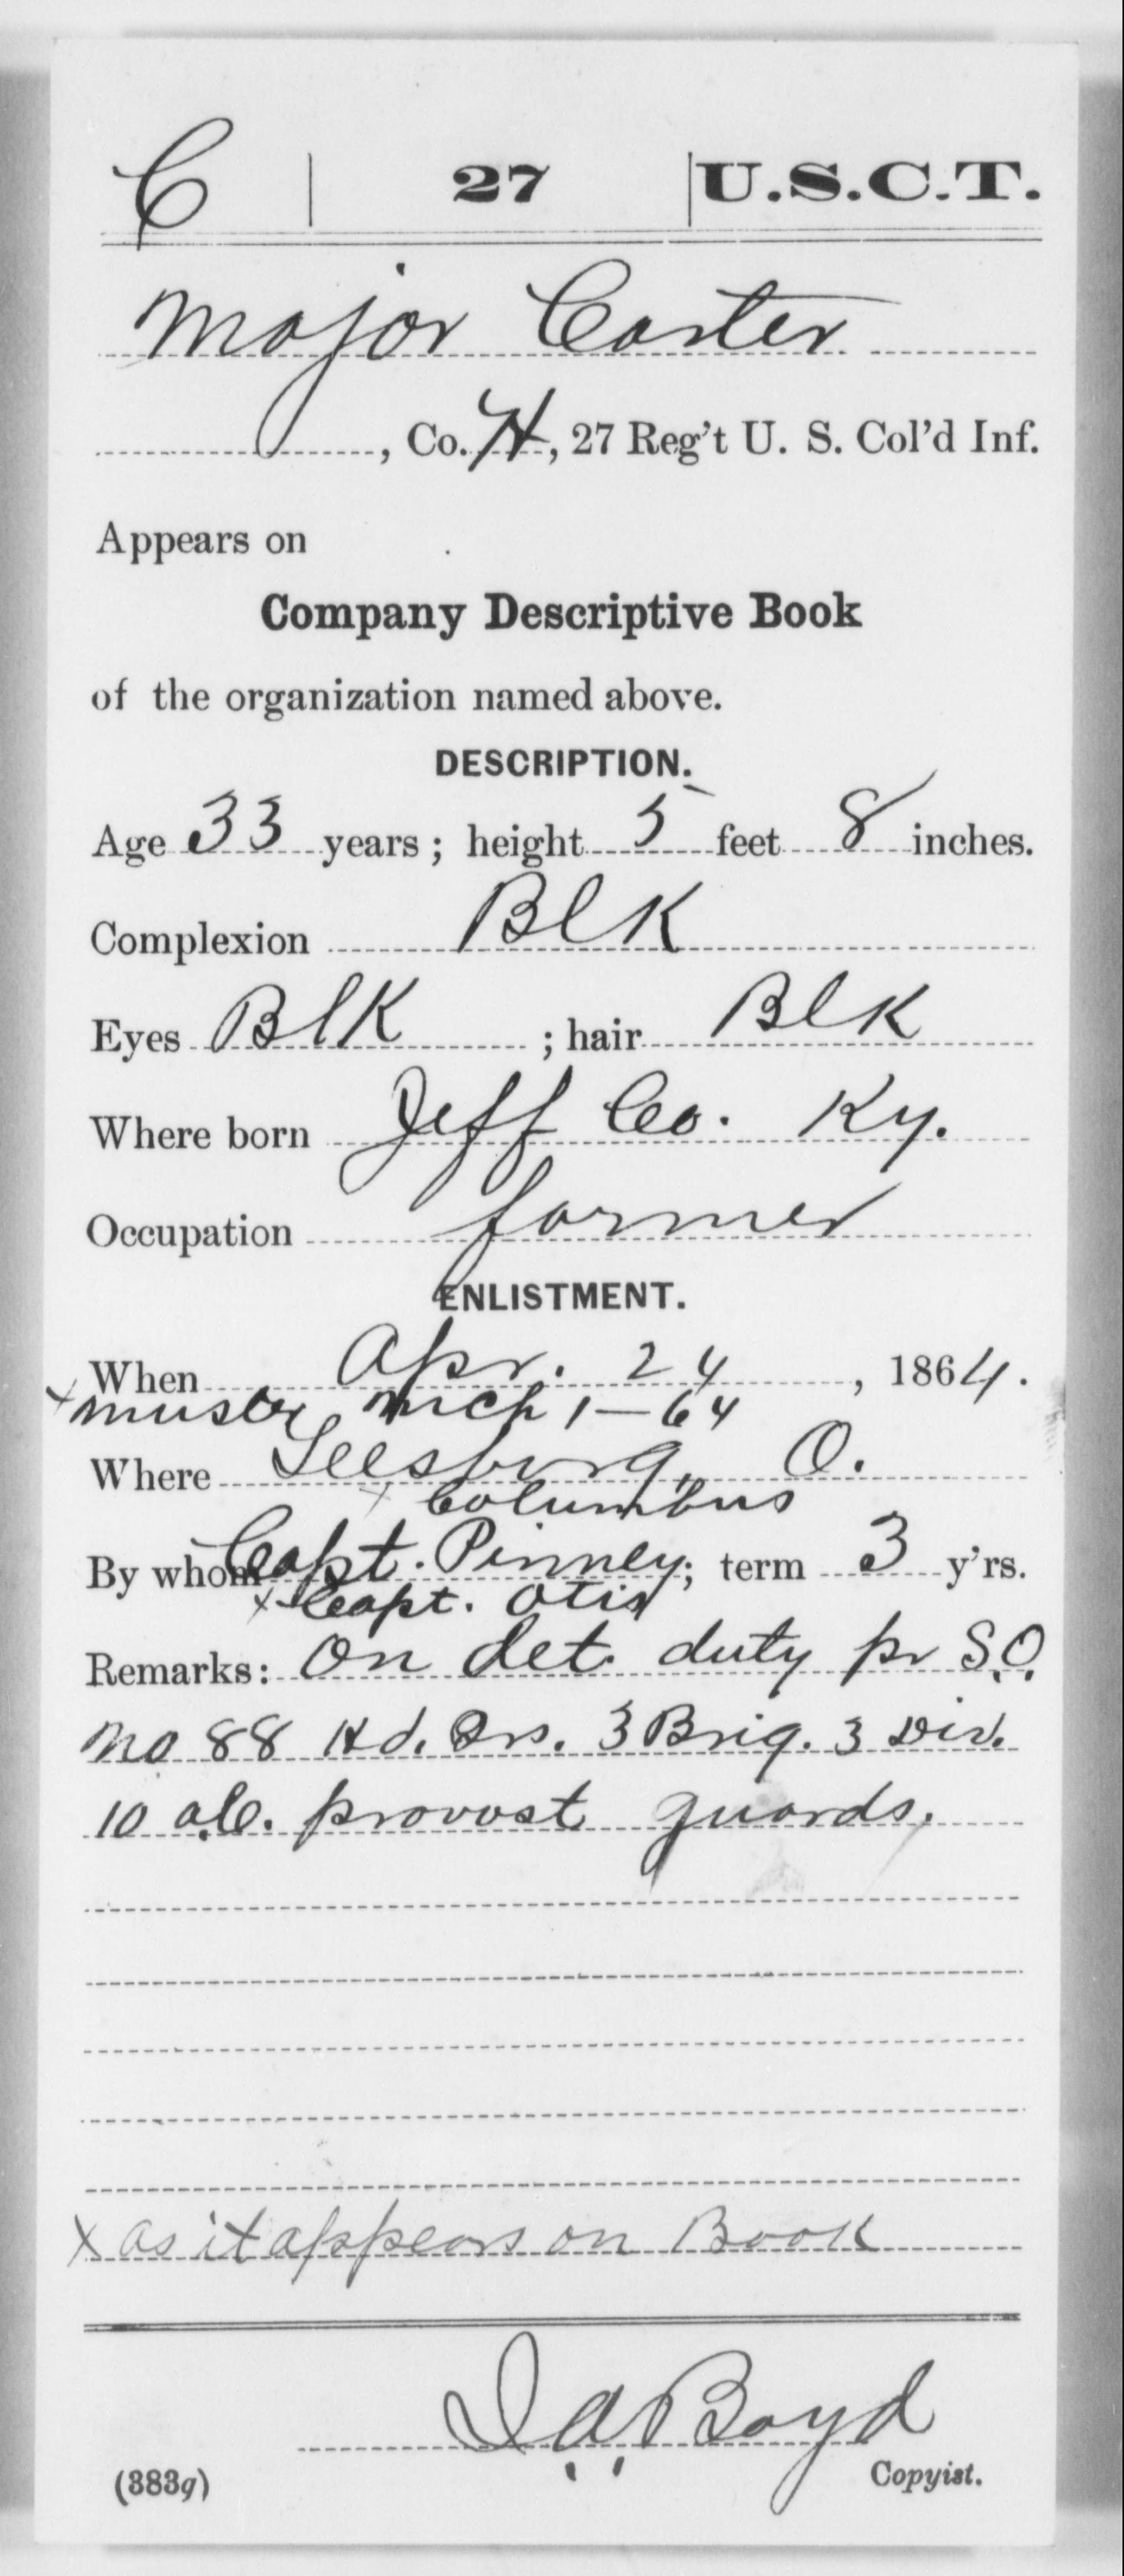 C | 27 | U.S.C.T.
Major Carter
, Co. H, 27 Reg't U. S. Col'd Inf.
Appears on
Company Descriptive Book
of the organization named above.
DESCRIPTION.
Age 33 years; height 5 feet 8 inches.
Complexion Blk
Eyes Blk ; hair Blk
Where born Jeff Co. Ky.
Occupation farmer
ENLISTMENT.
When Apr. 24, 1864.
x muster Mch 1-64
Where Leesburg, O.
x Columbus
By whom Capt. Pinney; term 3 y'rs.
x Capt. Otis
Remarks: On det. duty pr S.O.
No 88 Hd. Qrs. 3 Brig. 3 Div.
10 A.C. provost guards.
x as it appears on Book
I. A. Boyd
(383g) Copyist.